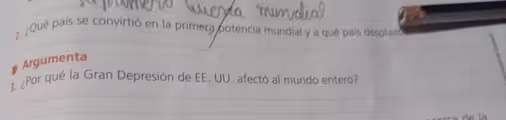 guerra mundial
2. ¿Qué país se convirtió en la primera potencia mundial y a qué país
Argumenta
3. ¿Por qué la Gran Depresión de EE. UU. afectó al mundo entero?
de la